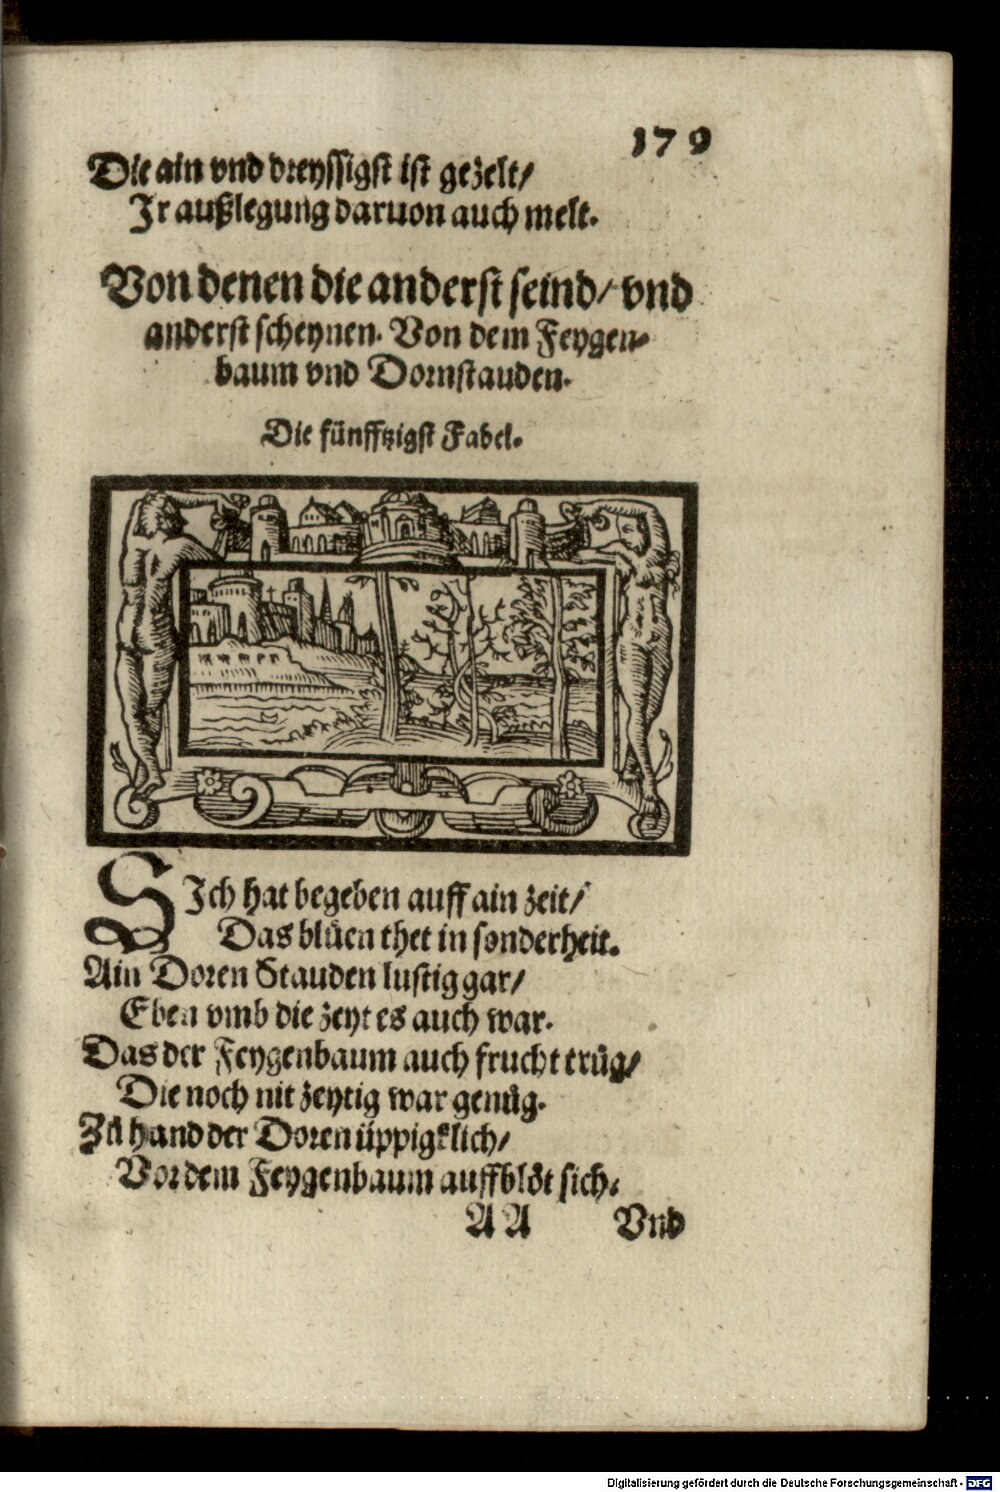 179
Die ain vnd dreyssigst ist gezelt/
Jr außlegung daruon auch melt.
Von denen die anderst seind/ vnd
anderst scheynen. Von dem Feygen-
baum vnd Dornstauden.
Die fünfftzigst Fabel.
SJch hat begeben auff ain zeit/
Das blüen thet in sonderheit.
Ain Doren Stauden lustig gar/
Eben vmb die zeyt es auch war.
Das der Feygenbaum auch frucht trůg/
Die noch nit zeytig war genůg.
Zů hand der Doren üppigklich/
Vor dem Feygenbaum auffblöt sich.
A A Vnd
Digitalisierung gefördert durch die Deutsche Forschungsgemeinschaft - DFG